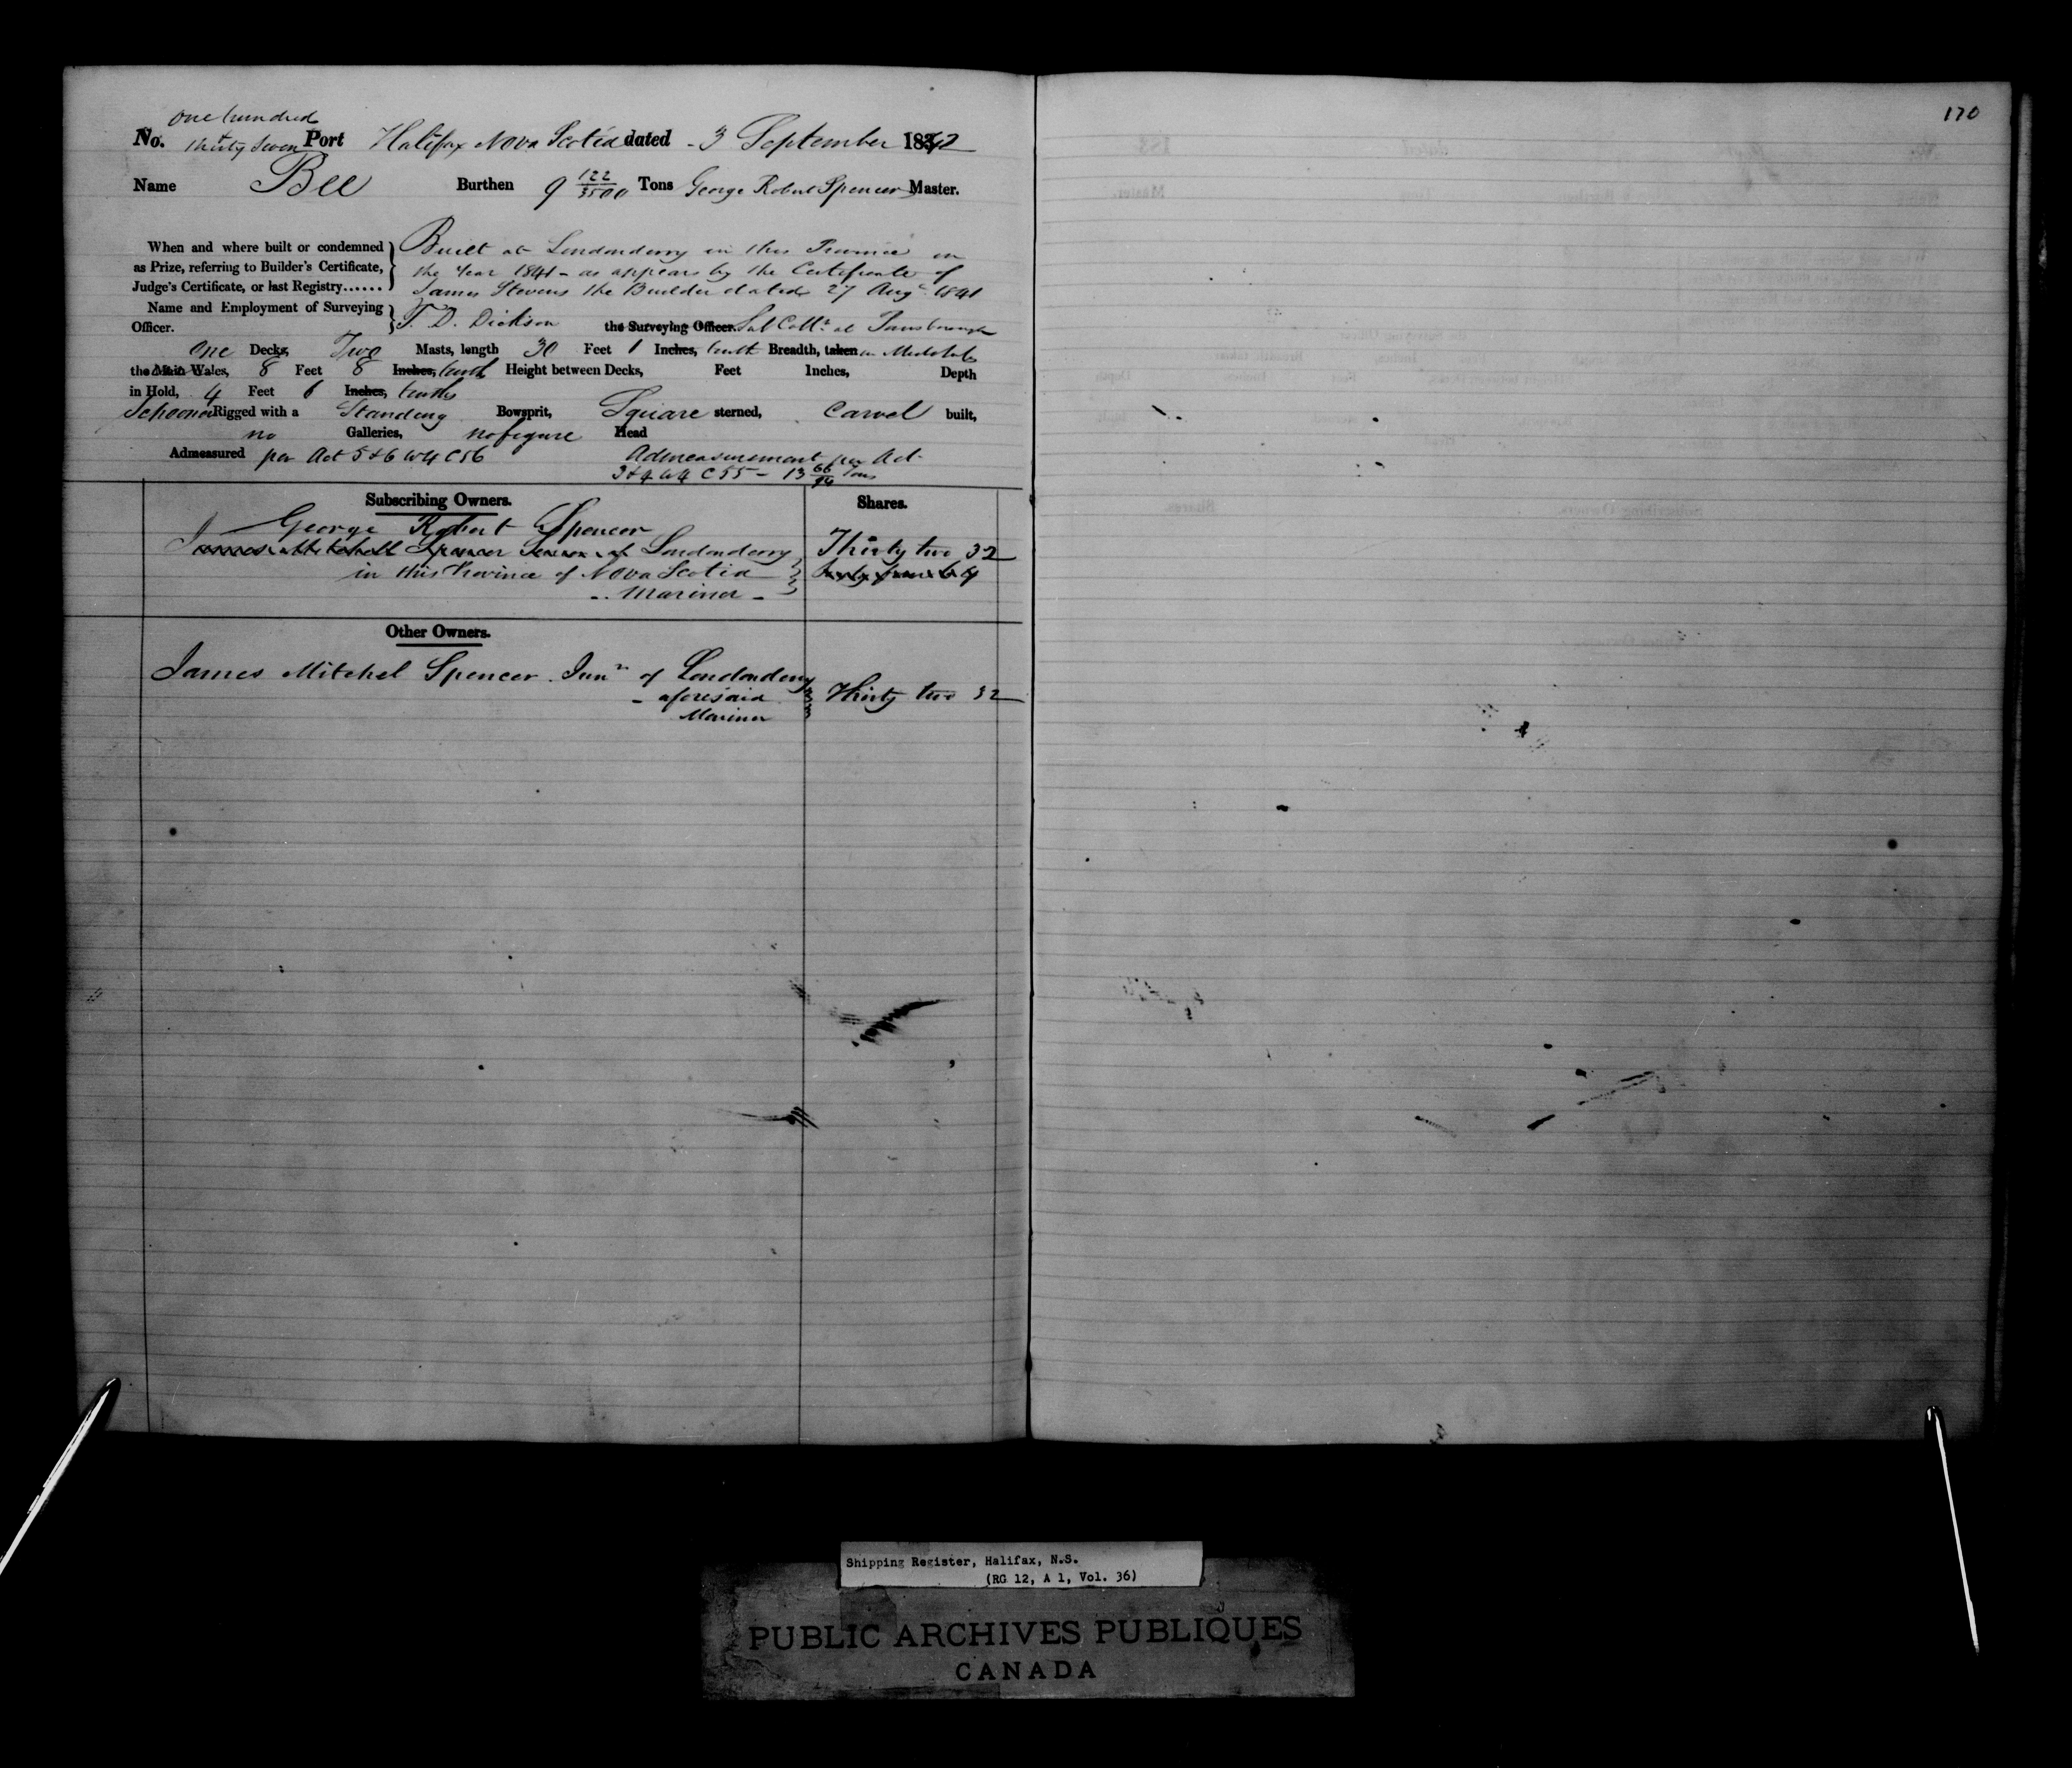 170
one hundred
No. thirty seven Port Halifax Nova Scotia dated - 3 September 1842
Name Bee Burthen 9 122/3500 Tons George Robert Spencer Master.
When and where built or condemned } Built at Londonderry in this Province in
as Prize, referring to Builder's Certificate, the Year 1841 - as appears by the Certificate of
Judge's Certificate, or last Registry...... James Stevens the Builder dated 27 Augt 1841
Name and Employment of Surveying
Officer. } T. D. Dickson the Surveying Officer. Sub Collr at Parrsborough
One Decks, Two Masts, length 30 Feet 1 Inches, tenth Breadth, taken in Midships
the Main Wales, 8 Feet 8 Inches, tenths Height between Decks, Feet Inches, Depth
in Hold, 4 Feet 6 Inches, tenths
Schooner Rigged with a Standing Bowsprit, Square sterned, Carvel built,
no Galleries, no figure Head
Admeasured per Act 5 & 6 W 4 C 56 Admeasurement per Act
3 & 4 W 4 C 55 - 13 66/94 Tons
Subscribing Owners. Shares.
George Robert Spencer
James Mitchell Spencer Senior of Londonderry Thirty two 32
in this Province of Nova Scotia Sixty four 64
- Mariner -
Other Owners.
James Mitchel Spencer Junr of Londonderry
- aforesaid Thirty two 32
Mariner
Shipping Register, Halifax, N.S.
(RG 12, A 1, Vol. 36)
PUBLIC ARCHIVES PUBLIQUES
CANADA